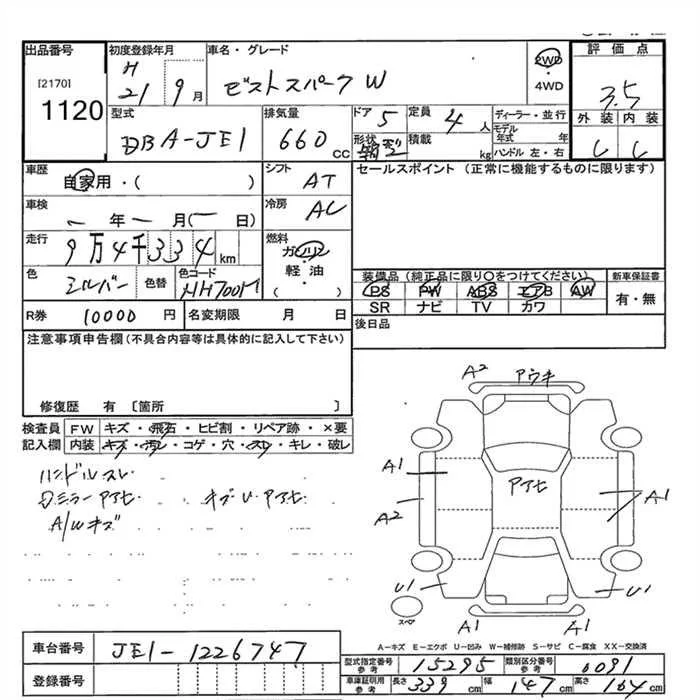 出品番号 初度登録年月 車名・グレード 2WD ・4WD 評価点
[2170] 1120 H 21 9月 ゼストスパーク W 3.5
型式 DBA-JE1 排気量 660 CC ドア 5 定員 4 人 ディーラー・並行 外装 内装
形状 積載 kg モデル年式 年 ハンドル 左・右 C C
車歴 自家用・( ) シフト AT セールスポイント (正常に機能するものに限ります)
車検 年 月( 日) 冷房 AC
走行 9万4千334 km 燃料 ガソリン 軽・油 ( )
色 シルバー 色替 色コード NH700M
装備品(純正品に限り○をつけてください) 新車保証書
PS PW ABS エアB AW 有・無
SR ナビ TV カワ
R券 10000 円 名変期限 月 日 後日品
注意事項申告欄(不具合内容等は具体的に記入して下さい)
修復歴 有〔箇所 〕
検査員記入欄 FW キズ・飛石・ヒビ割・リペア跡・×要
内装 キズ・汚レ・コゲ・穴・スレ・キレ・破レ
ハンドルスレ
Dミラーアセ キズUアセ
A/Wキズ
A2 アウキ
A1 アセ A1
A2
U1 U1
スペア A1 A1
A-キズ E-エクボ U-凹み W-補修跡 S-サビ C-腐食 XX-交換済
車台番号 JE1-1226747
登録番号
型式指定番号 参考 15295 類別区分番号 参考 0091
車庫証明用 参考 長さ 339 cm 幅 147 cm 高さ 164 cm